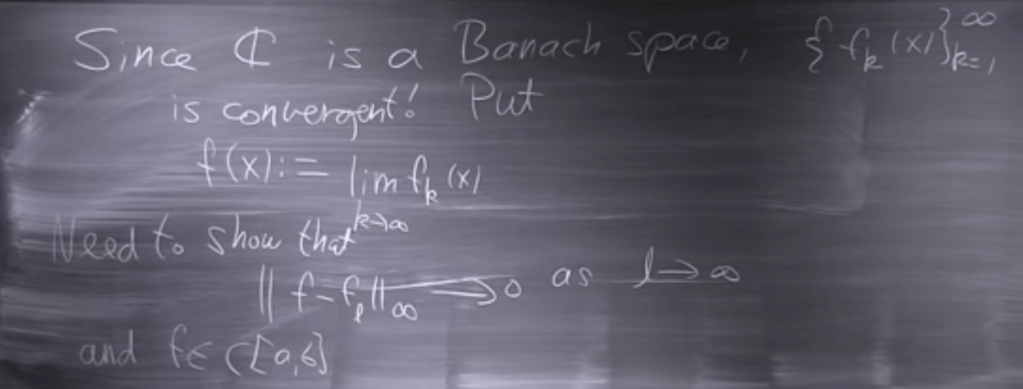 Since ℂ is a Banach space, {f_k(x)}_{k=1}^∞
is convergent! Put
f(x) := lim_{k→∞} f_k(x)
Need to show that
‖f-f_l‖_∞ → 0 as l → ∞
and f ∈ C[a,b]